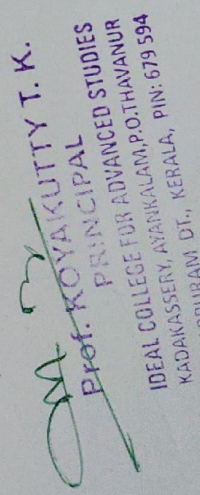 Prof. KOYAKUTTY T. K.
PRINCIPAL
IDEAL COLLEGE FOR ADVANCED STUDIES
KADAKASSERY, AYANKALAM, P.O.THAVANUR
DT., KERALA, PIN: 679 594